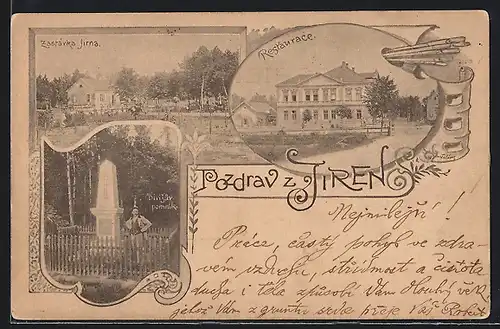 Zastávka Jirna.
Restaurace.
pomník.
Pozdrav z JIREN
Nejmilejší!
Práce, častý pohyb ve zdra-
vém vzduchu, střídmost a čistota
ducha i těla způsobí Vám Dlouhý věk
jehož Vám z gruntu srdce přeje Váš